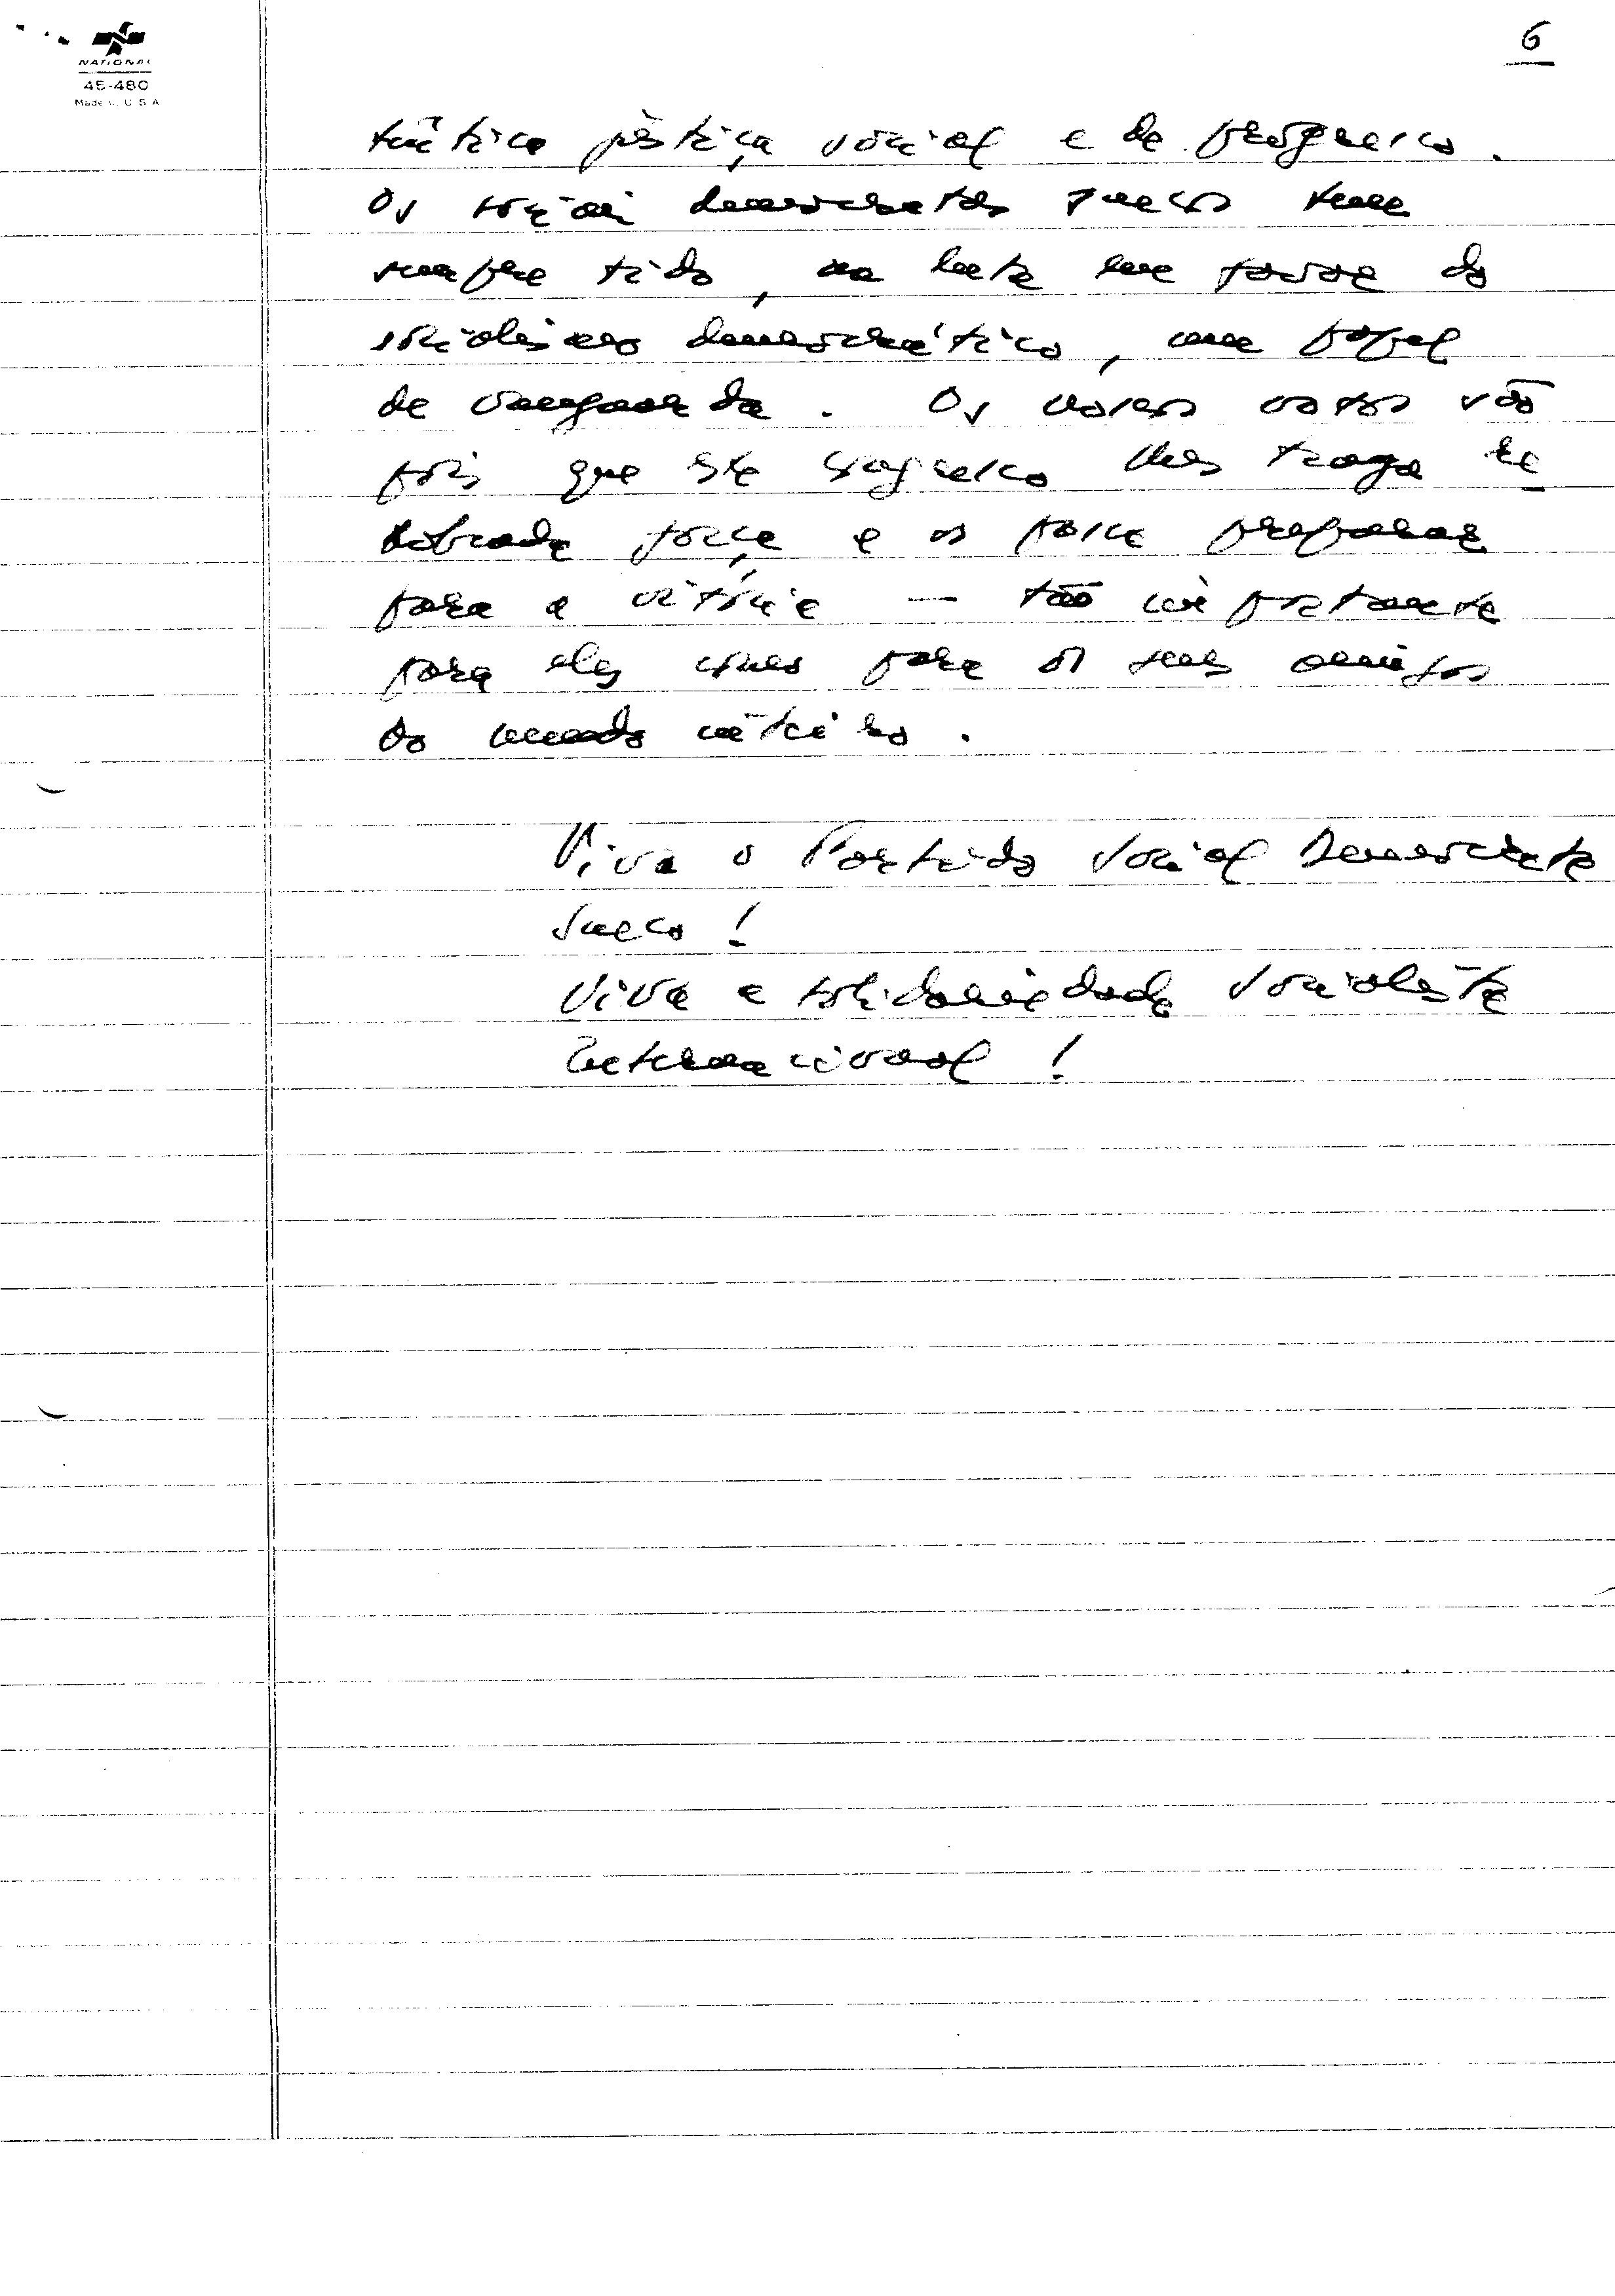 NATIONAL
45-480
Made in U S A
6
têntica justiça social e de progresso.
Os sociais democratas suecos teem
sempre tido, na luta em favor do
socialismo democrático, um papel
de vanguarda. Os nossos votos vão
pois que este congresso lhes traga re
dobrada força e os possa preparar
para a vitória — tão importante
para eles como para os seus amigos
do mundo inteiro.
Viva o Partido Social Democrata
Sueco!
Viva a solidariedade Socialista
Internacional!